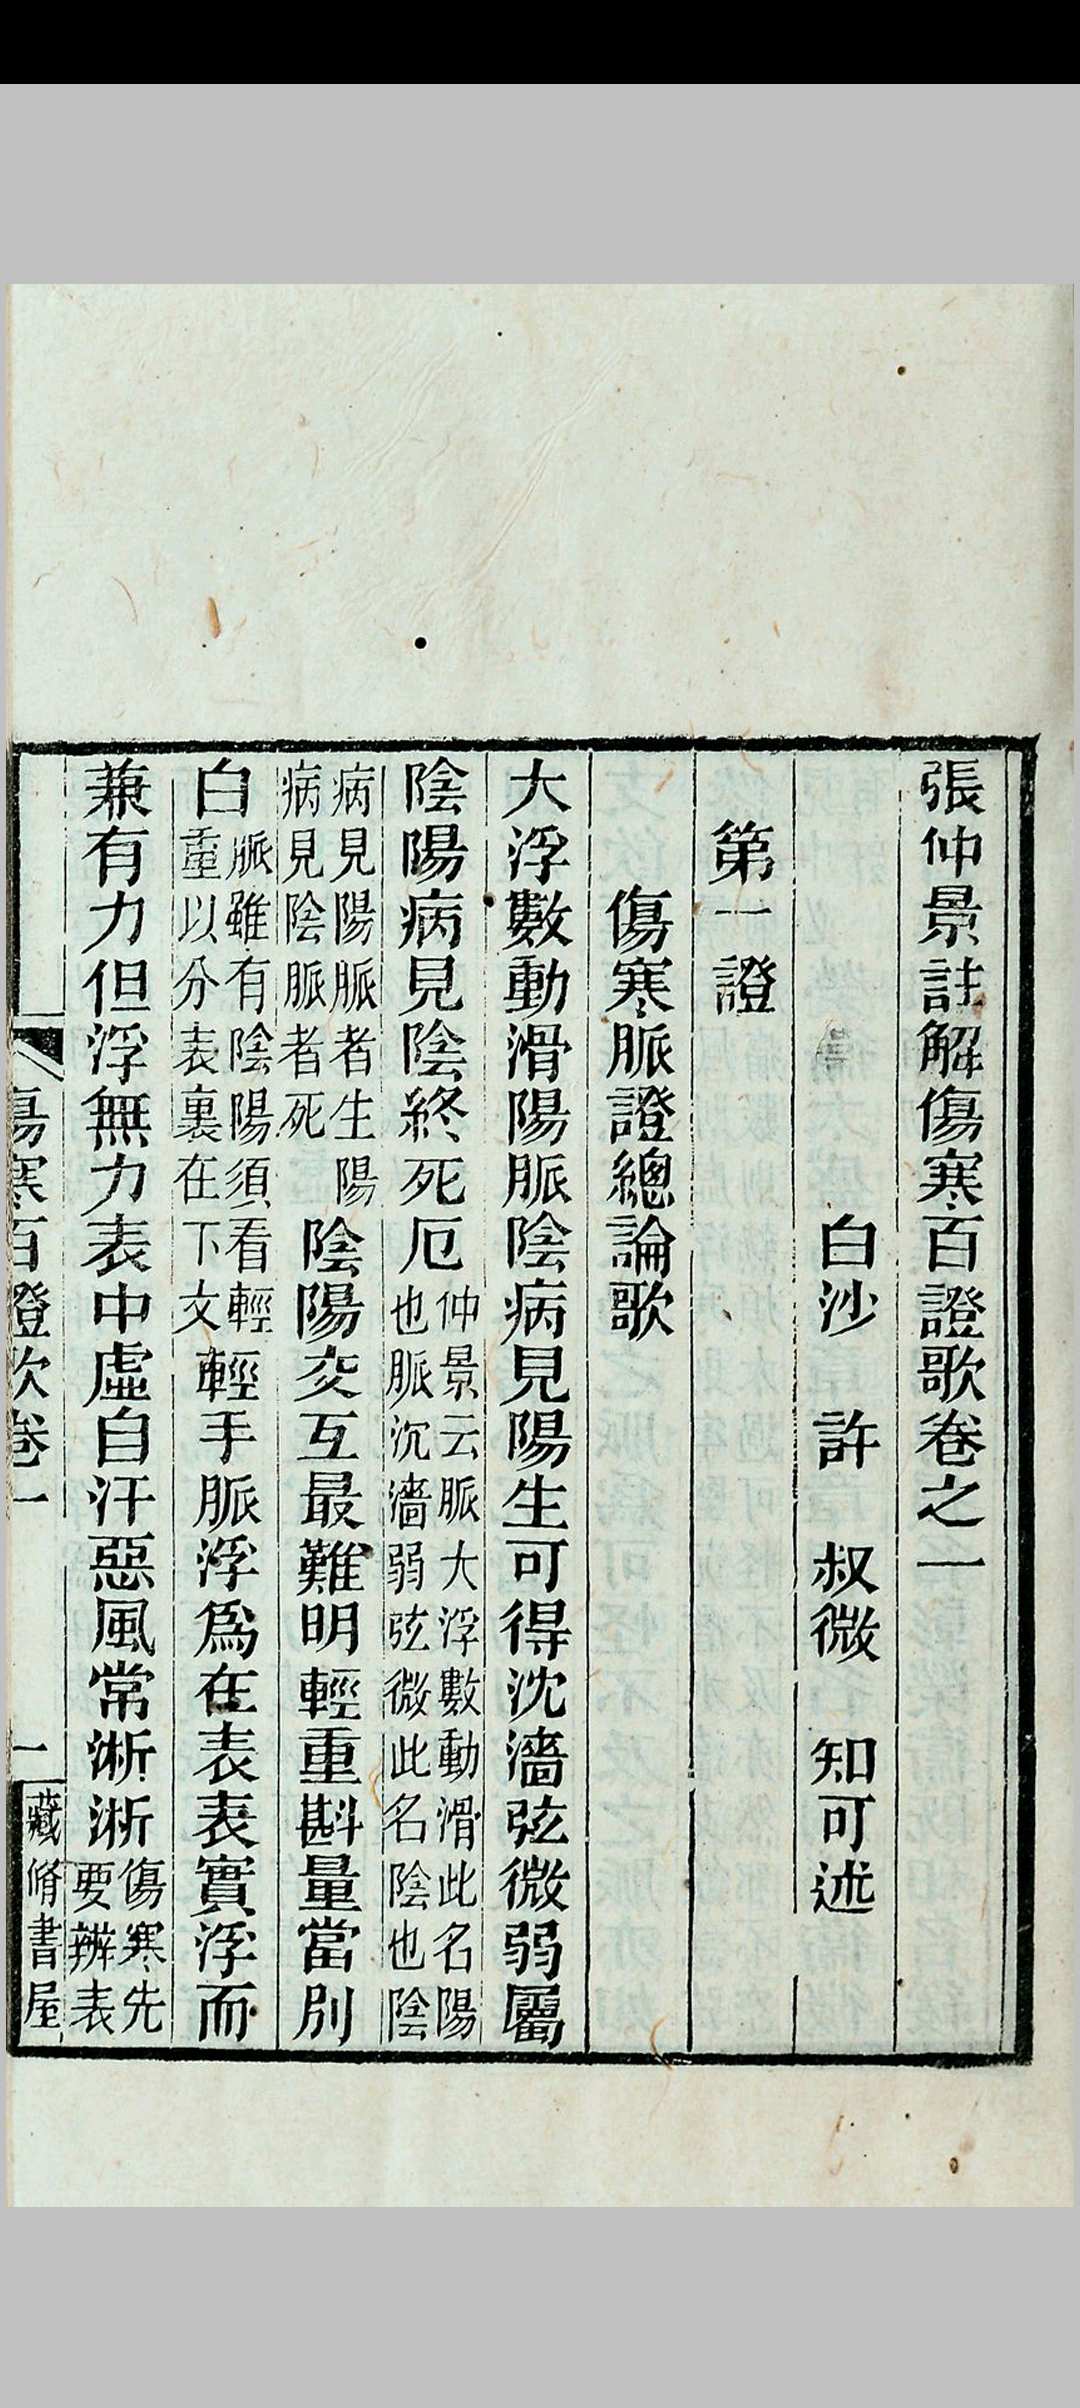 張仲景註解傷寒百證歌卷之一
白沙 許 叔微 知可述
第一證
傷寒脈證總論歌
大浮數動滑陽脈陰病見陽生可得沈濇弦微弱屬
陰陽病見陰終死厄仲景云脈大浮數動滑此名陽也脈沉濇弱弦微此名陰也陰
病見陽脈者生陽病見陰脈者死陰陽交互最難明輕重斟量當別
白脈雖有陰陽須看輕重以分表裏在下文輕手脈浮爲在表表實浮而
兼有力但浮無力表中虛自汗惡風常淅淅傷寒先要辨表
傷寒百證歌卷一 一 藏脩書屋